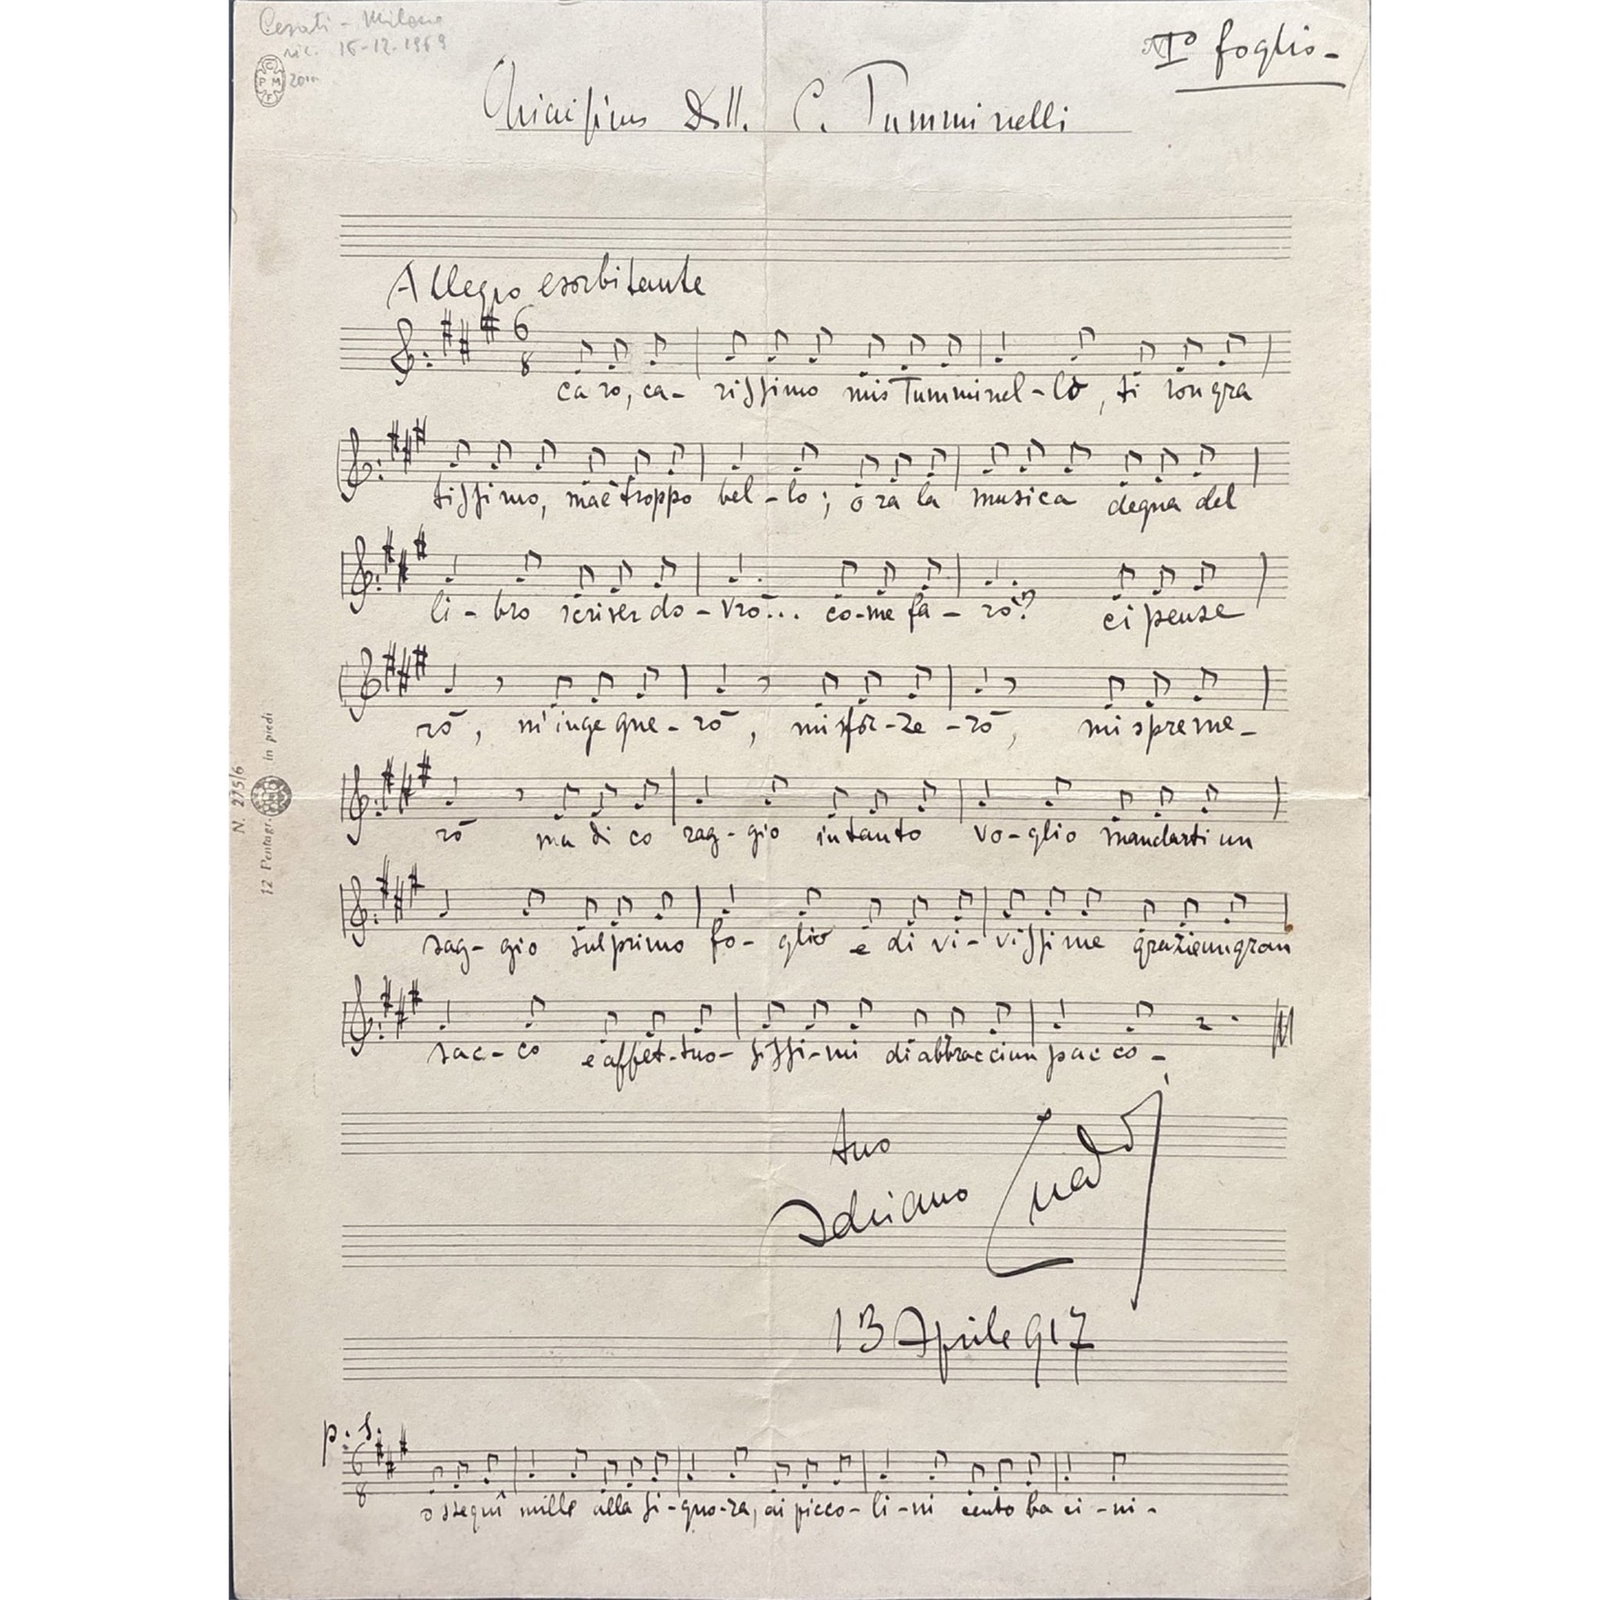 Cesati - Milano
ric. 16-12-1969
C P M F
Iº foglio -
Chiarissimo Dott. C. Tumminelli
Allegro esorbitante
6 8
ca ro, ca - rissimo mio Tumminel - lo, ti son gra
tissimo, ma è troppo bel - lo; o ra la musica degna del
li - bro scriver do - vrò... co - me fa - rò? ci pense
rò, m'inge gne - rò, mi sfor - ze - rò, mi spreme -
rò ma di co rag - gio intanto vo - glio mandarti un
sag - gio sul primo fo - glio e di vi - vissime grazie un gran
sac - co e affet - tuo - sissi - mi di abbracci un pac co -
tuo
Adriano
13 Aprile 917
N. 275/6
12 Pentagr. In piedi
p. s.
6 8
o ssequî mille alla si - gno - ra, ai picco - li - ni cento ba ci - ni -